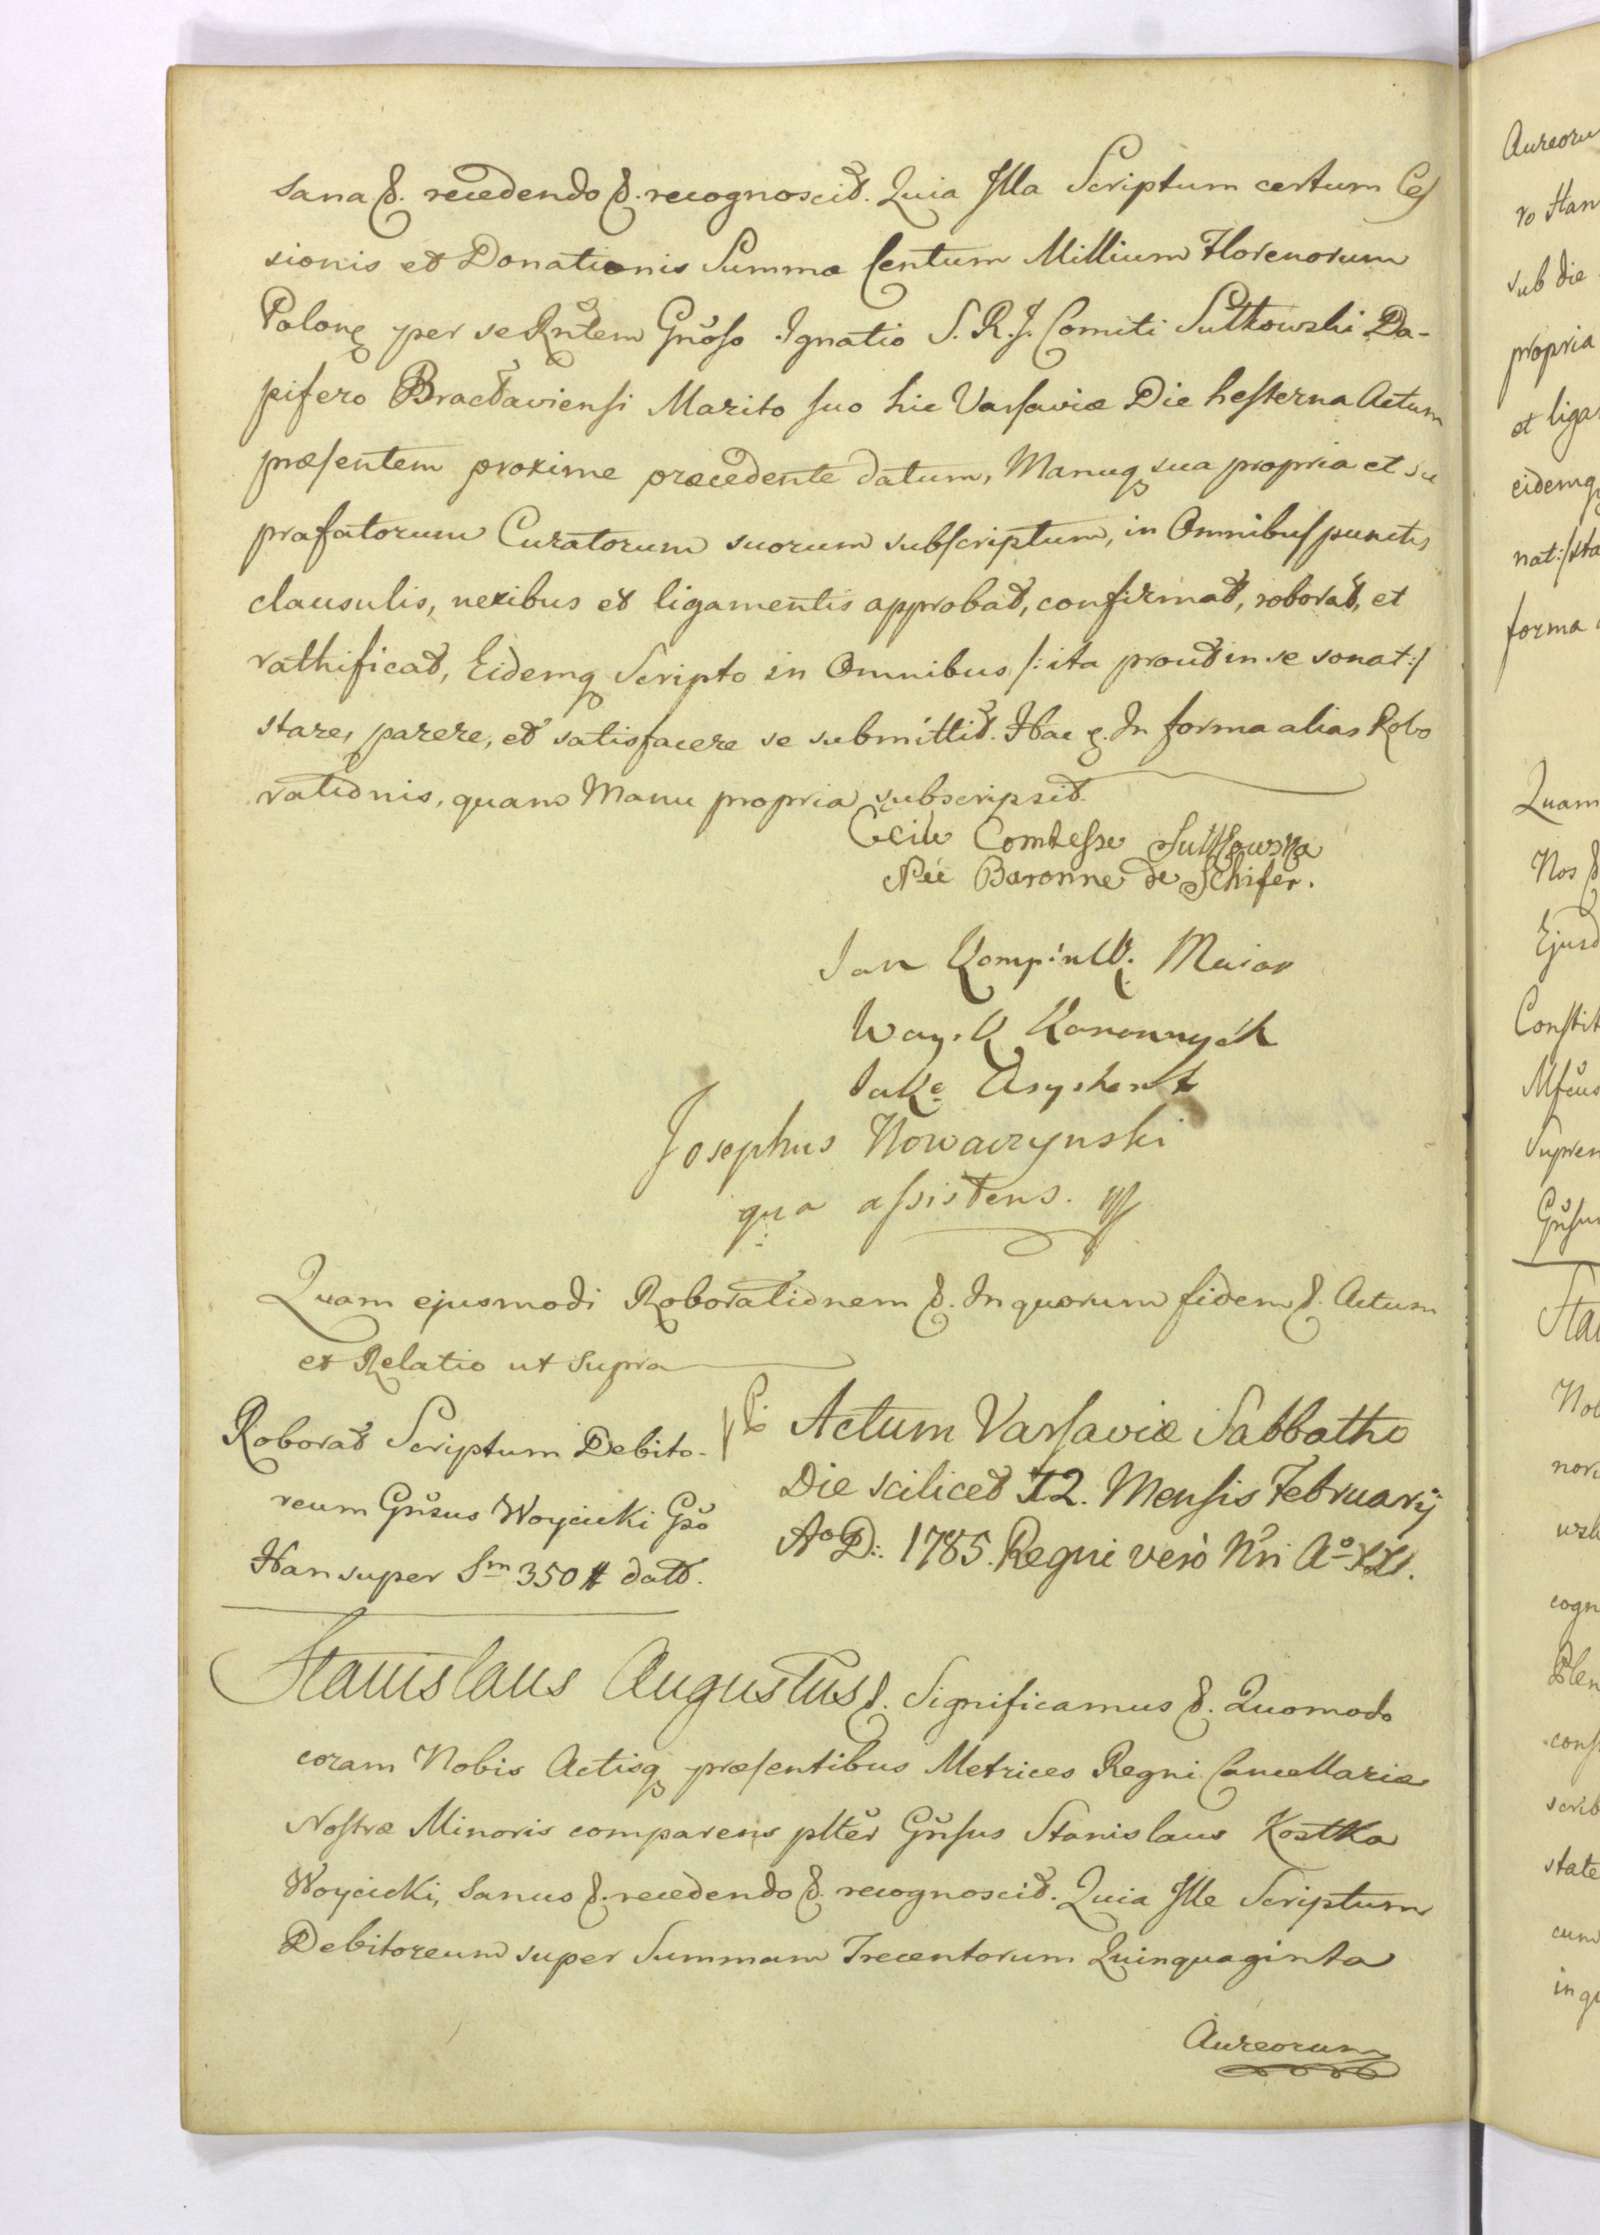 sana &. recedendo &. recognoscit. Quia Illa Scriptum certum Ces
sionis et Donationis Summæ Centum Millium Florenorum
Polonq per se Rntem Gnoso Ignatio S. R. J. Comiti Sułkowski Da-
pifero Braclaviensi Marito suo hic Varsaviæ Die hesterna Actum
præsentem proxime præcedente datum, Manuq sua propria et su
præfatorum Curatorum suorum subscriptum, in Omnibus punctis,
clausulis, nexibus et ligamentis approbat, confirmat, roborat, et
rathificat, Eidemq Scripto in Omnibus /: ita prout in se sonat :/
stare, parere, et satisfacere se submittit. Hac &. In forma alias Robo
rationis, quam Manu propria subscripsit.
Cecile Comtesse Sułkowska
Née Baronne de Schifer.
Jan Maior
Woy. K Koronnych
Jako Asystent
Josephus Nowaczynski
qua assistens.
Quam ejusmodi Roborationem &. In quorum fidem &. Actum
et Relatio ut supra
Roborat Scriptum Debito-
reum Gnsus Woycicki Gso
Han super Sm 350 # datt.
Actum Varsaviæ Sabbatho
Die scilicet 12. Mensis Februarij
Ao D: 1785. Regni verò Nri Ao XXI.
Stanislaus Augustus &. Significamus &. Quomodo
coram Nobis Actisq præsentibus Metrices Regni Cancellariæ
Nostræ Minoris comparens plter Gnsus Stanislaus Kostka
Woycicki, sanus &. recedendo &. recognoscit. Quia Ille Scriptum
Debitoreum super Summam Trecentorum Quinquaginta
Aureorum
Aureoru
ro Han
sub die
propria
et liga
eidemq
forma
Quam
Nos &
Ejusd
Constit
Supren
Gnsu
Sta
cogn
Plen
cons
scrib
state
cum
in qu